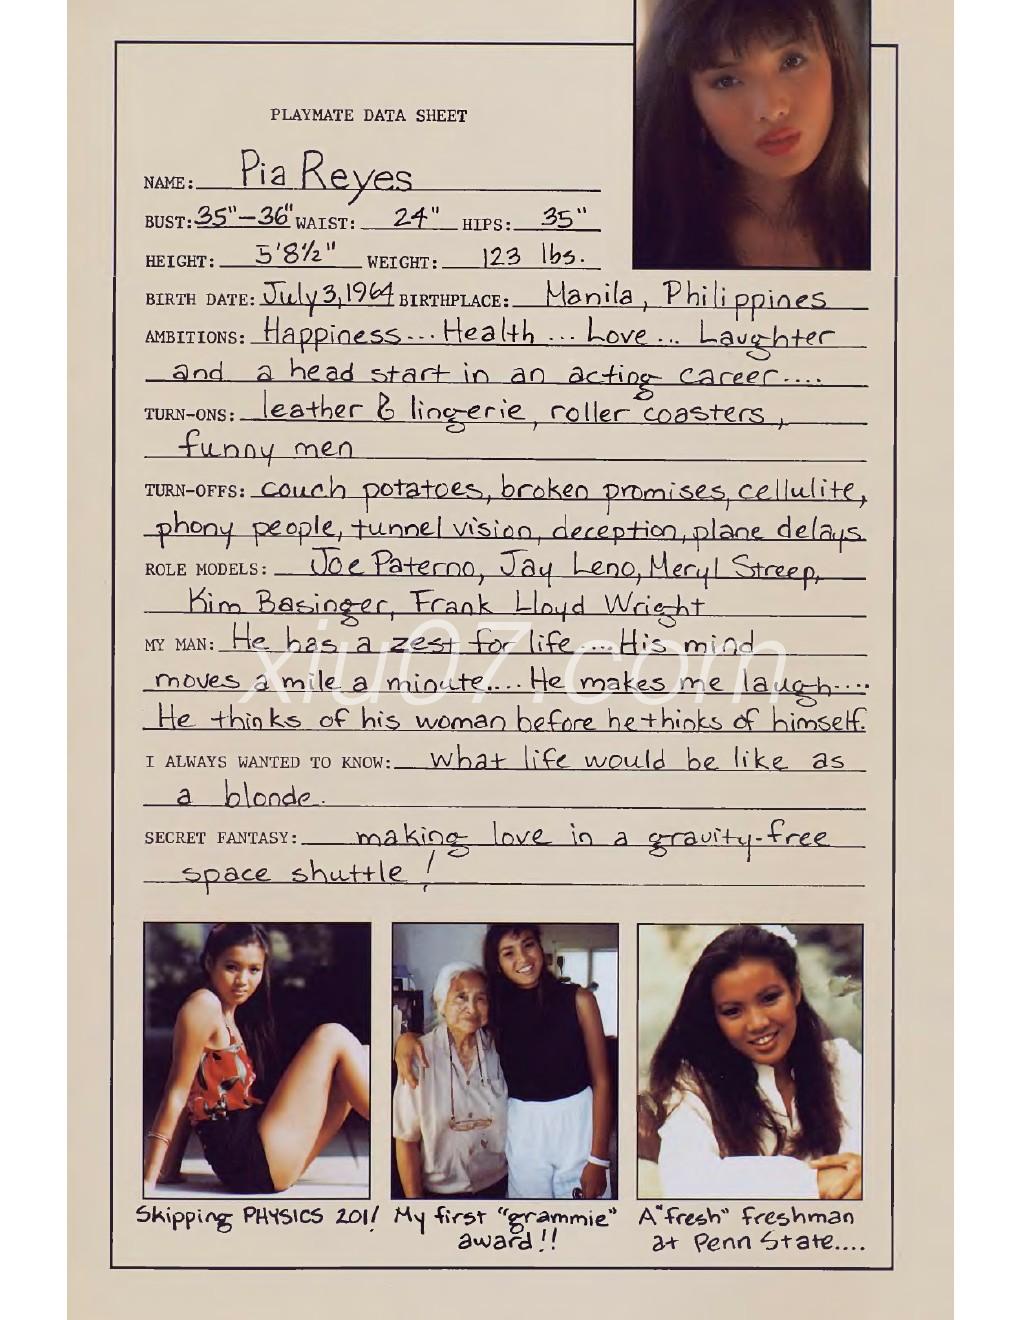 PLAYMATE DATA SHEET
NAME: Pia Reyes
BUST: 35"-36" WAIST: 24" HIPS: 35"
HEIGHT: 5'8½" WEIGHT: 123 lbs.
BIRTH DATE: July 3, 1964 BIRTHPLACE: Manila, Philippines
AMBITIONS: Happiness... Health ... Love... Laughter
and a head start in an acting career....
TURN-ONS: leather & lingerie, roller coasters,
funny men
TURN-OFFS: couch potatoes, broken promises, cellulite,
phony people, tunnel vision, deception, plane delays
ROLE MODELS: Joe Paterno, Jay Leno, Meryl Streep,
Kim Basinger, Frank Lloyd Wright
MY MAN: He has a zest for life.... His mind
xiu07.com
moves a mile a minute.... He makes me laugh....
He thinks of his woman before he thinks of himself.
I ALWAYS WANTED TO KNOW: what life would be like as
a blonde.
SECRET FANTASY: making love in a gravity-free
space shuttle!
Skipping PHYSICS 201!
My first "grammie"
award!!
A "fresh" freshman
at Penn State....